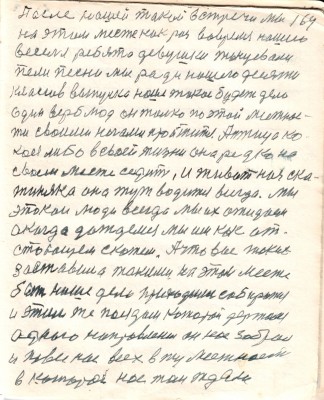 После нашей такой встречи мы 164
на этом месте как раз вовремя нашего
веселя ребята девушки танцевали
пели песни мы ради нашего десяти
классов выпуска наше такое будет дело
один верблюд он только по этой местнос-
ти своими ногами А птица ко-
кая либо в своей жизни она редко на
своем месте сидит, И животная ска-
тиняка она тут водити всегда. мы
этаком люди всегда мы их ожидаем
а когда дождемся мы им как от-
скажем. А то вас таких
заставила такими на этом месте
наше дело приходим собирати
и этим же поездам которой держит
одного направления он нас забрал
и повез нас всех в ту местность
в которой нас там ждали